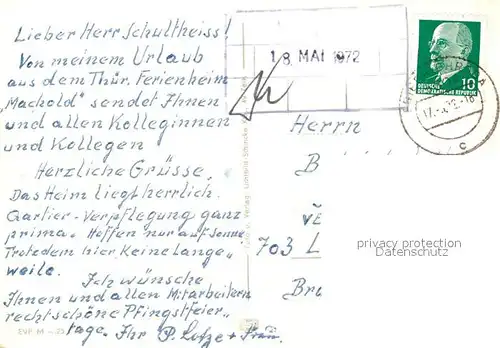 Lieber Herr Schultheiss!
Von meinem Urlaub
aus dem Thür. Ferienheim
„Machold" sendet Ihnen
und allen Kolleginnen
und Kollegen
Herzliche Grüsse,
Das Heim liegt herrlich.
Qartier-Verpflegung ganz
prima. Hoffen nur auf Sonne.
Trotzdem hier keine Lange„
weile.
Ich wünsche
Ihnen und allen Mitarbeitern
recht schöne Pfingstfeier„
tage. Ihr P. Lotze + Frau.
18. MAI 1972
DEUTSCHE
DEMOKRATISCHE REPUBLIK
10
c
Herrn
B
703 L
Br
privacy protection
Datenschutz